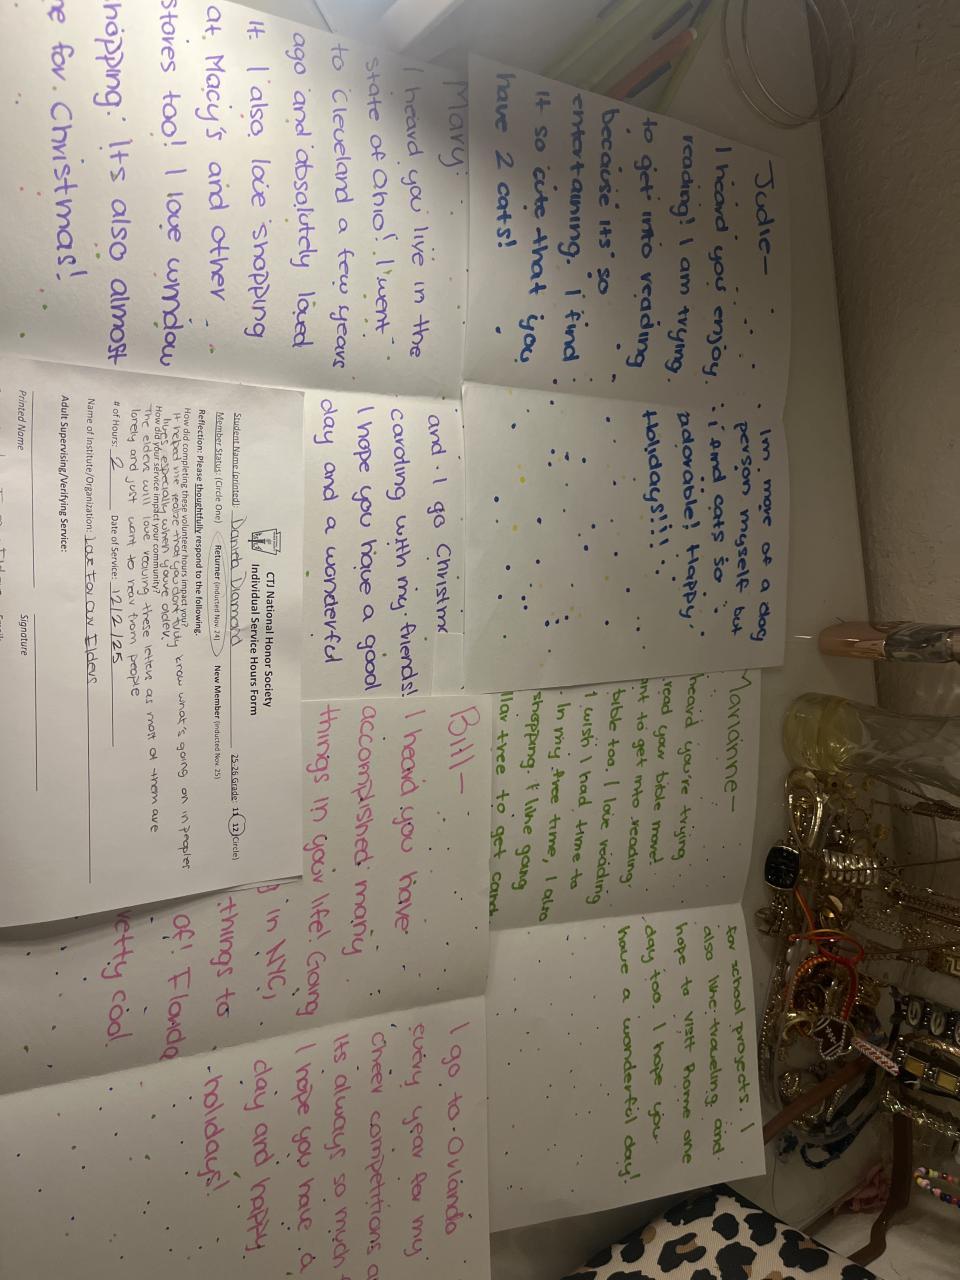 Judie-
I heard you enjoy
reading! I am trying
to get into reading
because it's so
entertaining. I find
it so cute that you
have 2 cats!
Im more of a dog
person myself but
i find cats so
adorable! Happy
Holidays!!!
Mary-
I heard you live in the
state of Ohio! I went
to Cleveland a few years
ago and absolutely loved
it. I also love shopping
at Macy's and other
stores too! I love window
hopping. Its also almost
for Christmas!
and I go Christm
caroling with my friends!
I hope you have a good
day and a wonderful
Marianne-
heard you're trying
read your bible more!
nt to get into reading
bible too. I love reading
I wish I had time to
In my free time, I also
shopping. I like going
llar tree to get
for school projects. I
also like traveling and
hope to visit Rome one
day too. I hope you
have a wonderful day!
Bill-
I heard you have
accomplished many
things in your life! Going
in NYC,
things to
of! Florida
retty cool
I go to Orlando
every year for my
cheer competitions a
Its always so much
I hope you have a
day and happy
holidays!
CTJ National Honor Society
Individual Service Hours Form
Student Name (printed): Danita Diamond 25-26 Grade: 11 12 (Circle)
Member Status: (Circle One) Returner (inducted Nov. 24) New Member (inducted Nov. 25)
Reflection: Please thoughtfully respond to the following.
How did completing these volunteer hours impact you?
It helped me realize that you dont truly know what's going on in peoples
lives especially when youre older.
How did your service impact your community?
The elders will love reciving these letters as most of them are
lonely and just want to hear from people
# of Hours: 2 Date of Service: 12/2/25
Name of Institute/Organization: Love For Our Elders
Adult Supervising/Verifying Service:
Printed Name Signature